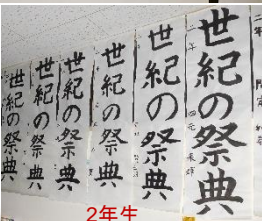 世紀の祭典
世紀の祭典
世紀の祭典
世紀の祭典
世紀の祭典
世紀の祭典
二年
2年生